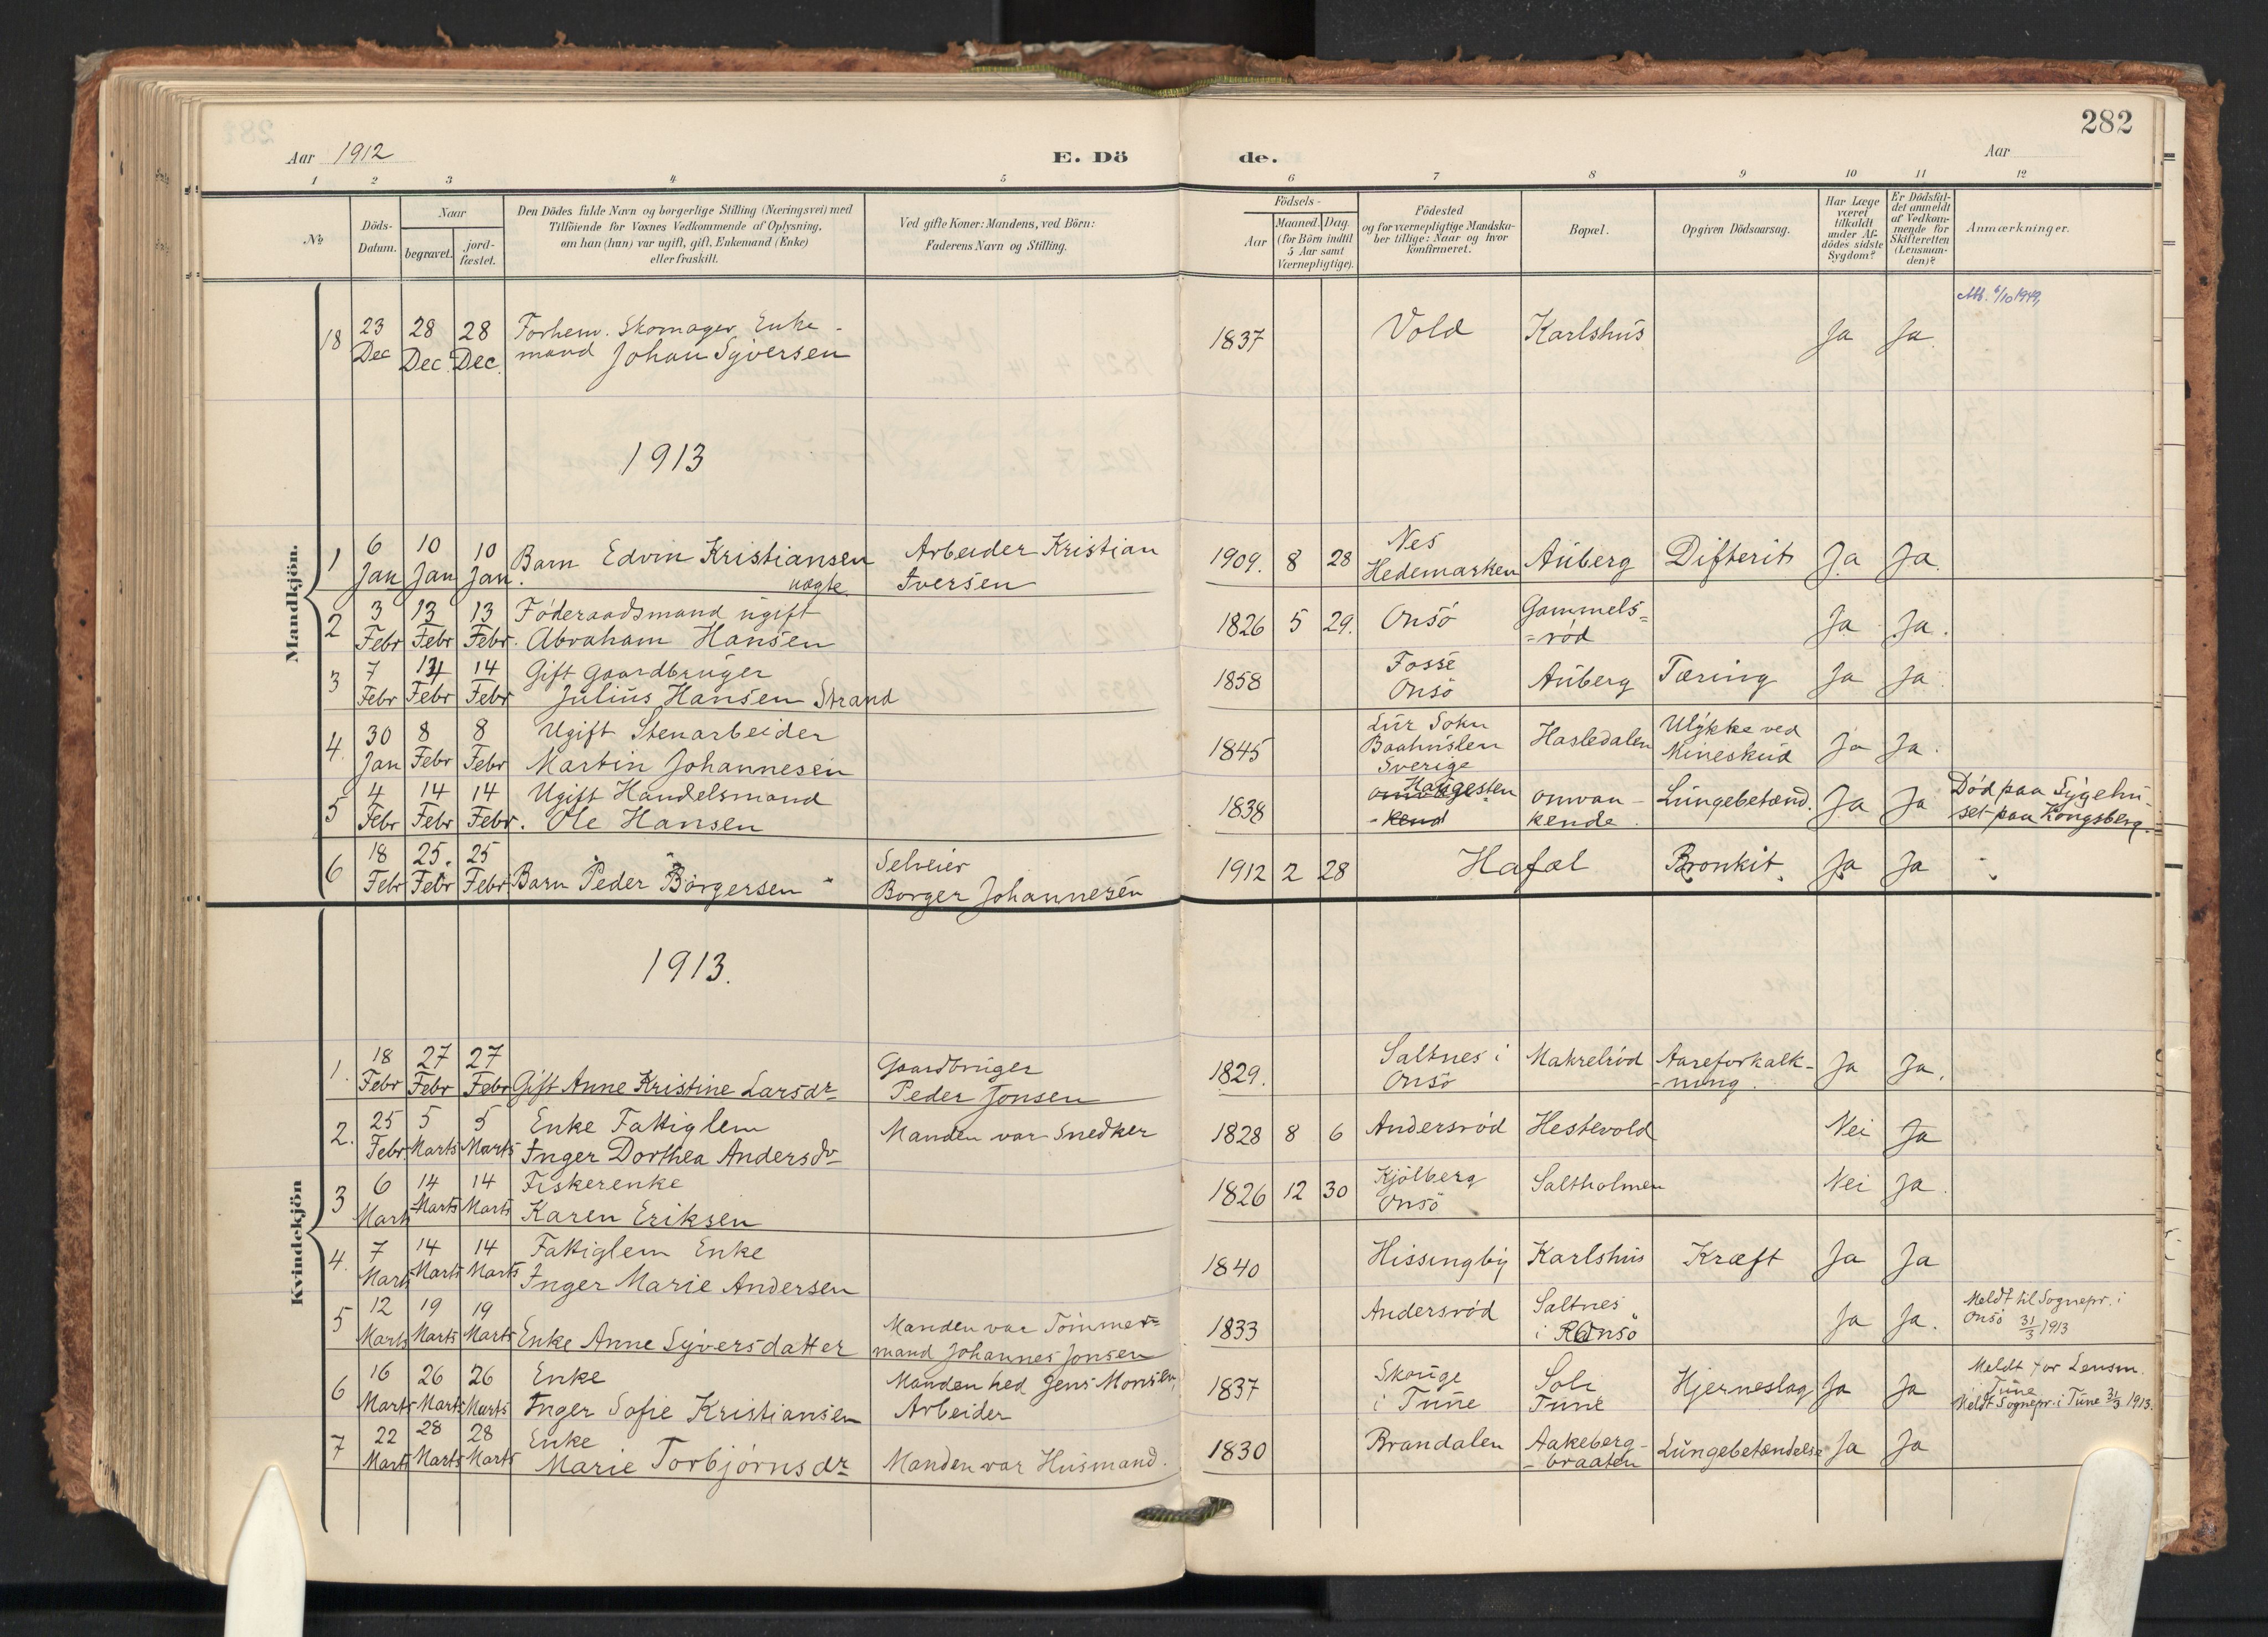 282
Aar 1912
E. Dö de.
Aar
1 2 3 4 5 6 7 8 9 10 11 12
No
Döds-Datum.
Naar
begravet.
jord-fæstet.
Den Dödes fulde Navn og borgerlige Stilling (Næringsvei) med
Tilföiende for Voxnes Vedkommende af Oplysning,
om han (hun) var ugift, gift, Enkemand (Enke)
eller fraskilt.
Ved gifte Koner: Mandens, ved Börn:
Faderens Navn og Stilling.
Födsels-
Aar
Maaned. Dag.
(for Börn indtil
5 Aar samt
Værnepligtige).
Födested
og for værnepligtige Mandska-
ber tillige: Naar og hvor
konfirmeret.
Bopæl.
Opgiven Dödsaarsag.
Har Læge
været
tilkaldt
under Af-
dödes sidste
Sygdom?
Er Dödsfal-
det anmeldt
af Vedkom-
mende for
Skifteretten
(Lensman-
den)?
Anmærkninger.
6/10 1949,
18 23 Dec 28 Dec 28 Dec. Forhenv. Skomager Enke-
mand Johan Syversen 1837 Vold Karlshus Ja Ja.
1913
Mandkjön.
1 6 Jan 10 Jan 10 Jan. Barn Edvin Kristiansen
uægte. Arbeider Kristian
Iversen 1909. 8 28 Nes
Hedemarken Auberg Difterit Ja Ja.
2 3 Febr 13 Febr 13 Febr. Föderaadsmand ugift
Abraham Hansen 1826 5 29. Onsö Gammels=
=röd Ja Ja.
3 7 Febr 14 Febr 14 Febr Gift Gaardbruger
Julius Hansen Strand 1858 Fosse
Onsö Auberg Tæring Ja Ja.
4. 30 Jan 8 Febr 8 Febr Ugift Stenarbeider
Martin Johannesen 1845 Lur Sokn
Baahuslen
Sverige Hasledalen Ulykke ved
Mineskud Ja Ja.
5 4 Febr 14 Febr 14 Febr. Ugift Handelsmand
Ole Hansen 1838 Haugesten
-kend omvan-
kende. Lungebetænd. Ja Ja Död paa Sygehu-
set paa Kongsberg.
6 18 Febr 25. Febr 25 Febr Barn Peder Börgersen Selveier
Borger Johannesen 1912 2 28 Hafal Bronkit. Ja Ja
1913.
Kvindekjön
1. 18 Febr 27 Febr 27 Febr Gift Anne Kristine Larsdr Gaardbruger
Peder Jonsen 1829. Saltnes i
Onsö Makrelröd Aareforkalk-
-ning. Ja Ja.
2. 25 Febr. 5 Marts 5 Marts Enke Fattiglem
Inger Dorthea Andersdr Manden var Snedker 1828 8 6 Andersröd Hestevold Nei Ja
3 6 Marts 14 Marts 14 Marts Fiskerenke
Karen Eriksen 1826 12 30 Kjölberg
Onsö Saltholmen Nei Ja.
4. 7 Marts 14 Marts 14 Marts Fattiglem Enke
Inger Marie Andersen 1840 Hissingby Karlshus Kræft Ja Ja
5 12 Marts 19 Marts 19 Marts Enke Anne Syversdatter Manden var Tömmer=
mand Johannes Jonsen 1833 Andersröd Saltnes
i Onsö Ja Ja. Meldt til Sognepr. i
Onsö 31/3 1913
6 16 Marts 26 Marts 26 Marts Enke
Inger Sofie Kristiansen Manden hed Jens Monsen,
Arbeider 1837 Skouge
i Tune Soli
Tune Hjerneslag Ja Ja Meldt for Lensm.
i Tune
Meldt Sognepr. i Tune 31/3 1913.
7 22 Marts 28 Marts 28 Marts Enke
Marie Torbjörnsdr Manden var Husmand. 1830 Brandalen Aakeberg-
-braaten Lungebetændelse Ja Ja